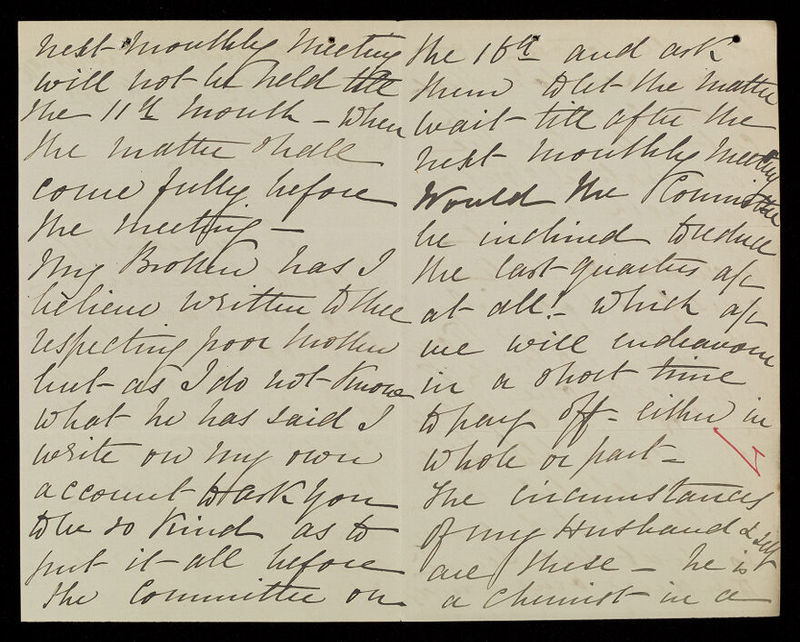 next monthly Meeting
will not be held till
the 11th month - when
the matter shall
come fully before
the meeting -
My Brother has I
believe written to thee
respecting poor Mother
but as I do not know
what he has said I
write on my own
account to ask you
to be so kind as to
put it all before
the Committee on
the 18th and ask
them to let the matter
wait till after the
next monthly meeting
Would the Committee
be inclined to reduce
the last quarters a/c
at all! - which a/c
we will endeavour
in a short time
to pay off - either in
whole or part -
The circumstances
of my Husband & self
are these - he is
a chemist in a